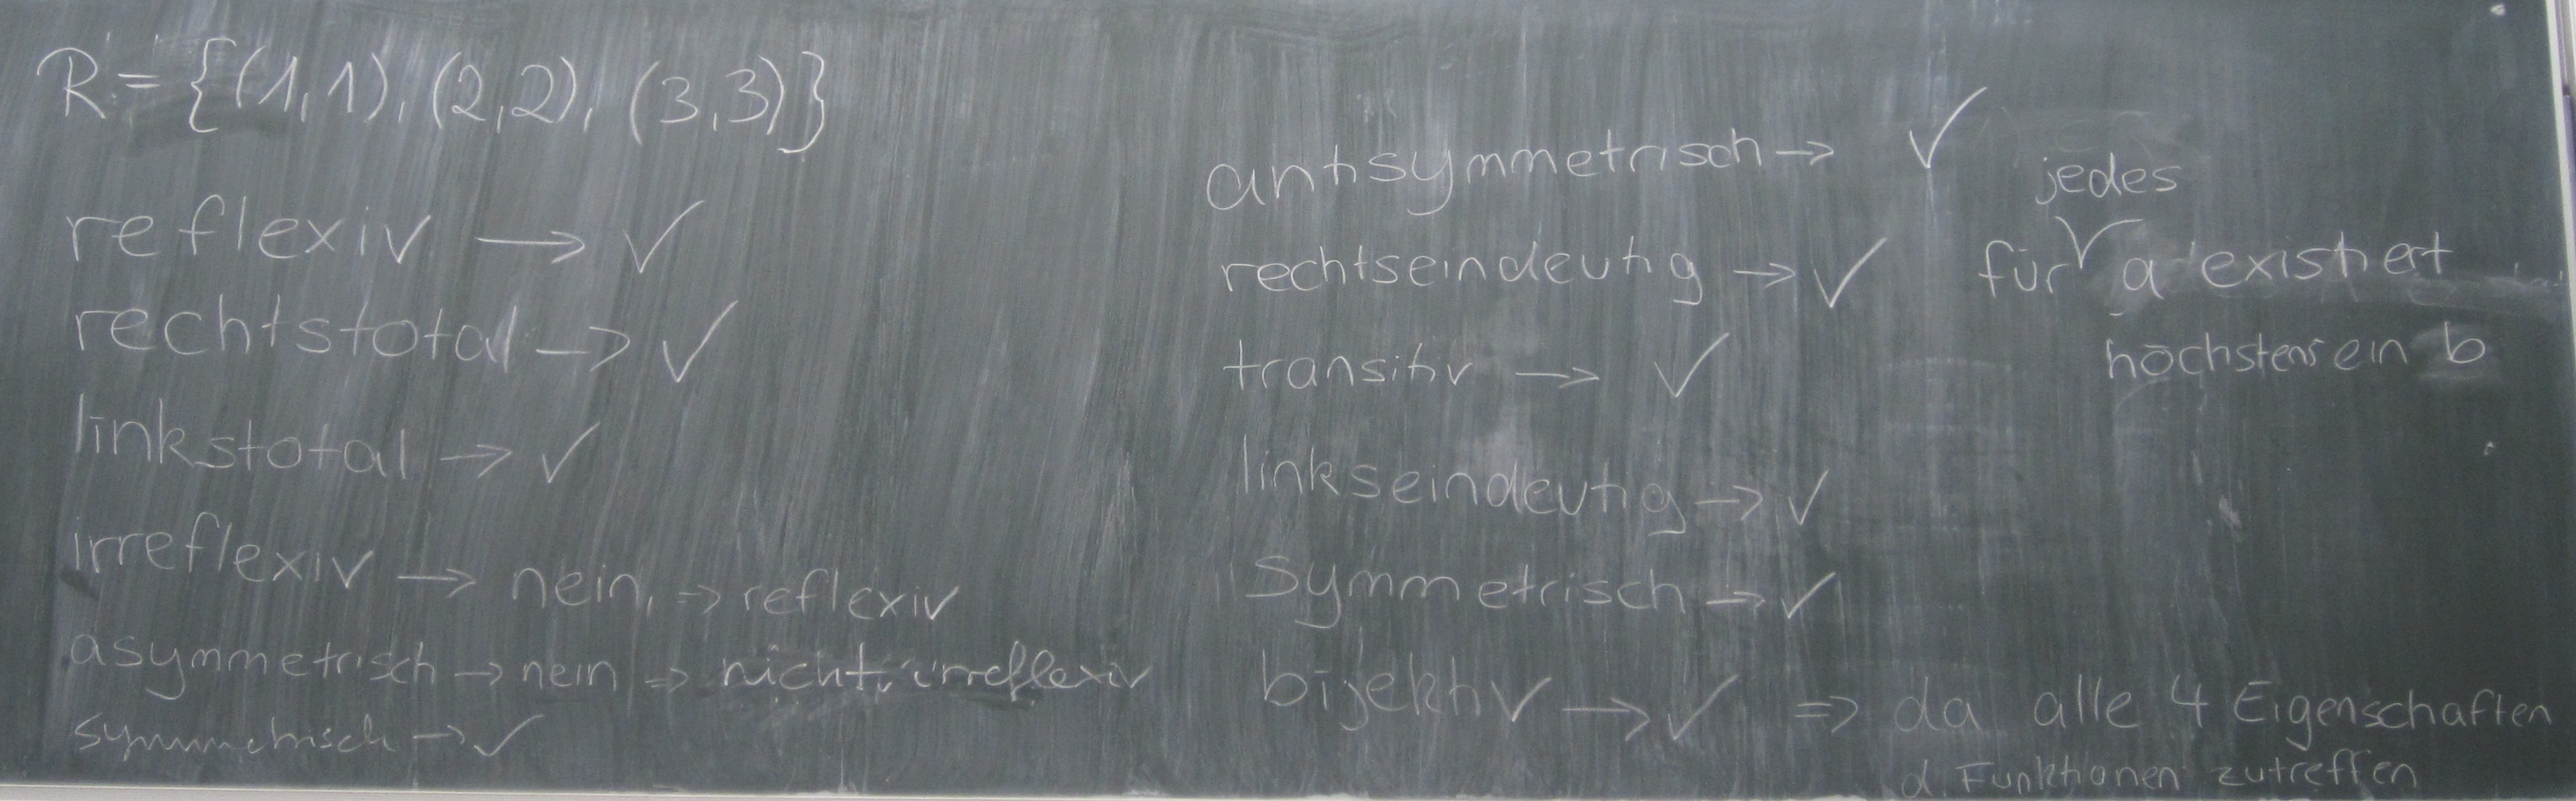 R := {(1,1), (2,2), (3,3)}
reflexiv → ✓
rechtstotal → ✓
linkstotal → ✓
irreflexiv → nein, ⇒ reflexiv
asymmetrisch → nein ⇒ nicht irreflexiv
symmetrisch → ✓
antisymmetrisch → ✓
rechtseindeutig → ✓ für jedes a existiert
höchstens ein b
transitiv → ✓
linkseindeutig → ✓
symmetrisch → ✓
bijektiv → ✓ ⇒ da alle 4 Eigenschaften
d. Funktionen zutreffen